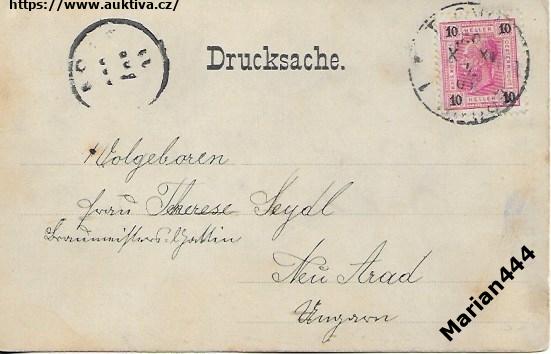 https://www.auktiva.cz/
Drucksache.
10 10
HELLER
10 10
Wolgeboren
Frau Therese Seydl
Braumeisters-Gattin
Neu Arad
Ungarn
Marian444